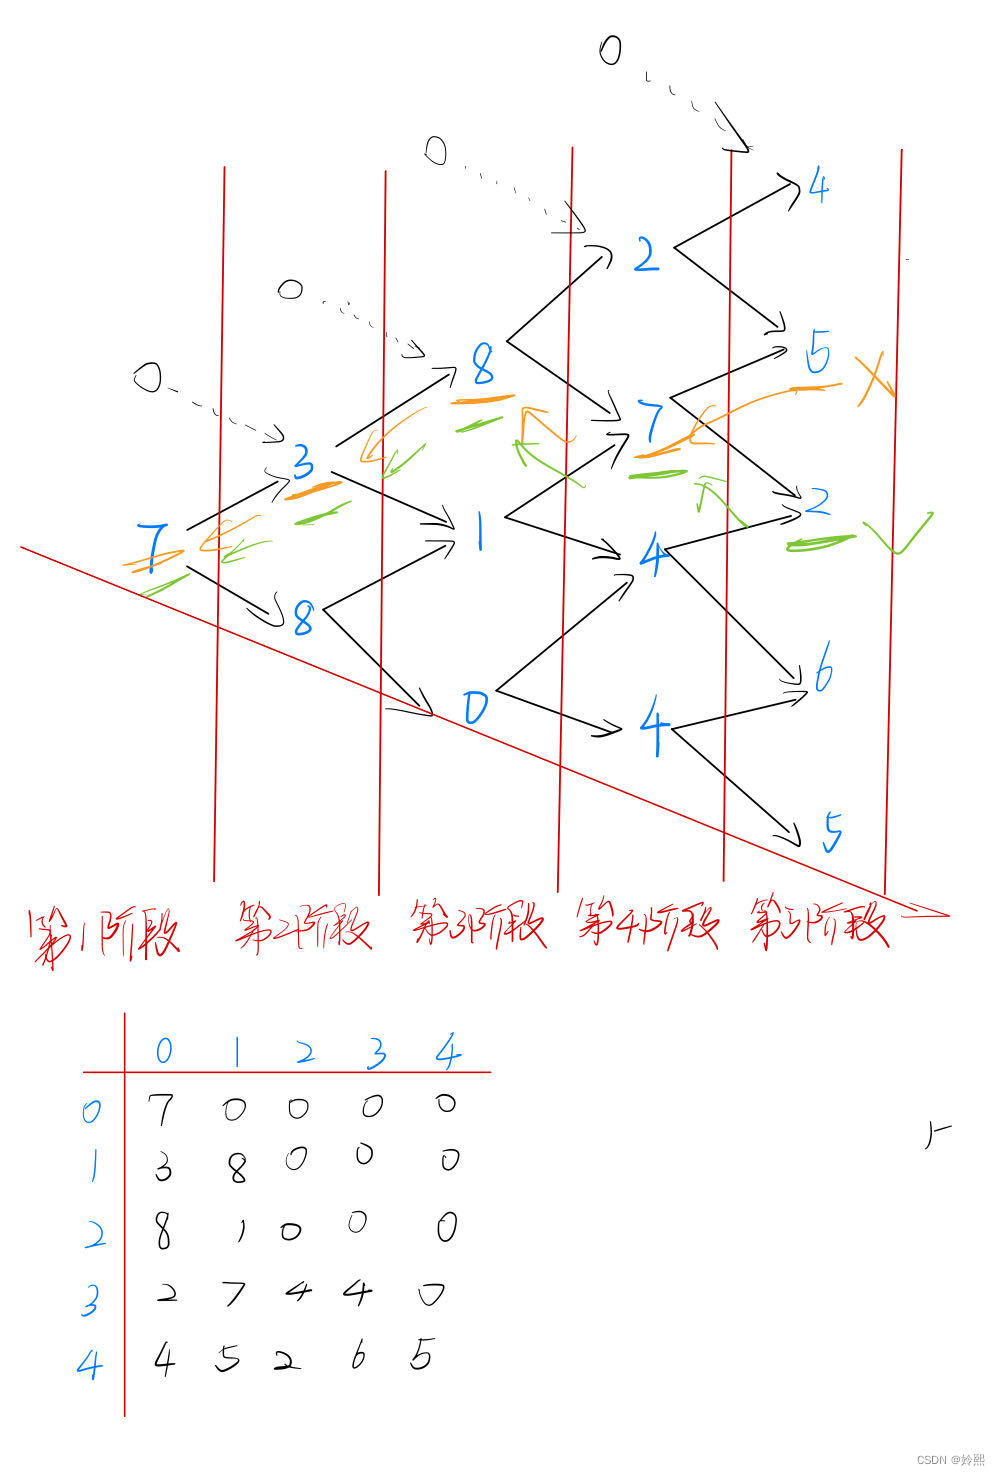 0
0
4
2
0
8
5
0
3
7
7
1
2
4
8
6
0
4
5
第1阶段 第2阶段 第3阶段 第4阶段 第5阶段
0 1 2 3 4
0 7 0 0 0 0
1 3 8 0 0 0
2 8 1 0 0 0
3 2 7 4 4 0
4 4 5 2 6 5
CSDN @姈熙